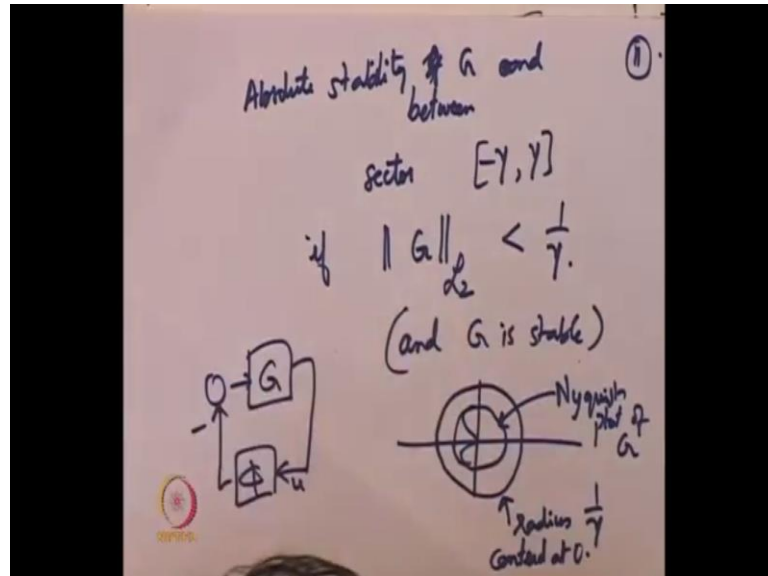 Absolute stability of G and
between
⑪.
sector [-γ, γ]
if ‖G‖_{ℒ₂} < 1/γ.
(and G is stable)
G
-
ϕ
u
Nyquist
plot of
G
radius 1/γ
centred at 0.
NPTEL